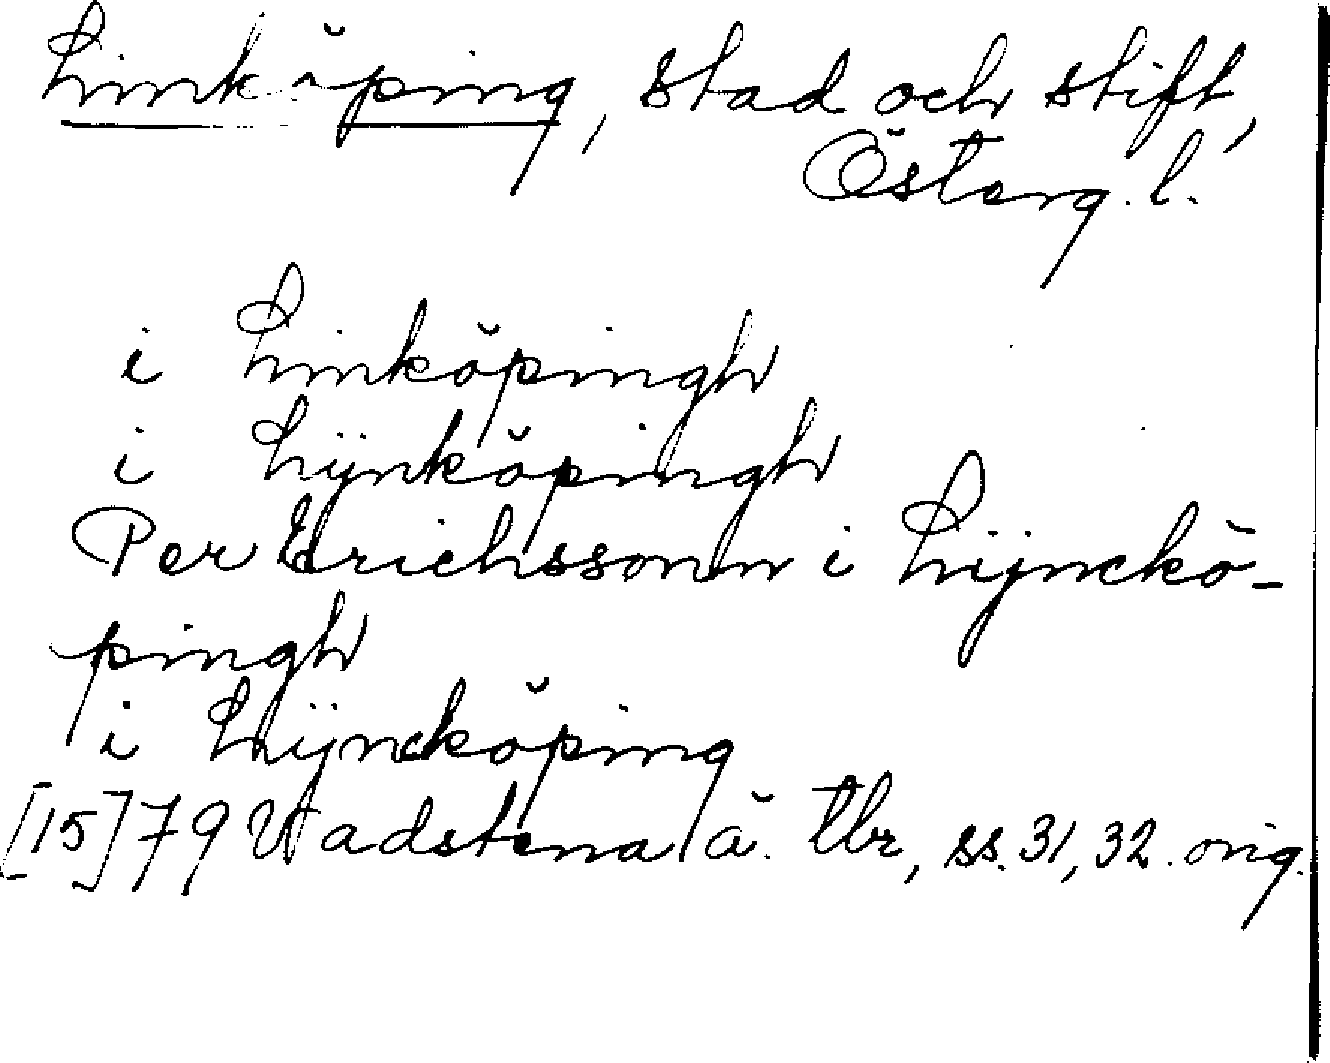 Linköping, stad och stift,
Österg. l.
i Linköpingh
i Lijnköpingh
Per Erichssonn i Lijnckö-
pingh
i Lijncköping
[15]79 Vadstena ä. tbr, ss. 31, 32. orig.